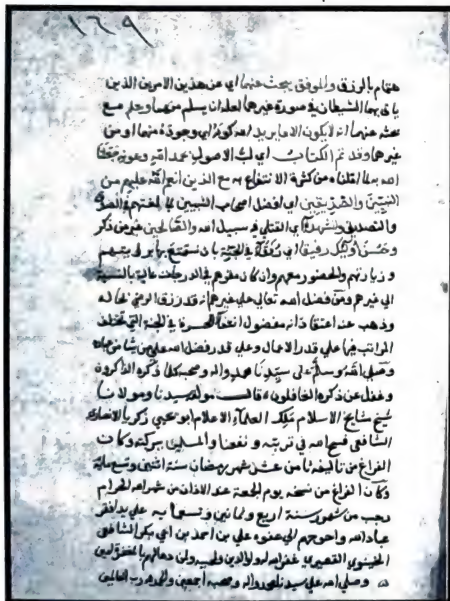 ١٦٩
هتمام بالرزق والموفق يبحث عنهما اي عن هذين الامرين الذين
ياتي بهما الشيطان في صورة غيرهما لعله ان يسلم منهما وجلم مع
بحثه عنهما انه لا يكون الا ما يريد الله كونه اي وجوده منهما او من
غيرهما وقد تم الكتاب اي لب الاصول بحمد الله وعونه جعلنا
الله به لما املناه من كثرة الانتفاع به مع الذين انعم الله عليهم من
النبيين والصديقين اي افضل اصحاب النبيين لمبالغتهم في الصدق
والتصديق والشهداء اي القتلى في سبيل الله والصالحين غير من ذكر
وحسن اوليك رفيقا اي رفقاء في الجنة بان نستمتع بها برؤيتهم
وزيارتهم والحضور معهم وان كان مقرهم في الدرجات عالية بالنسبة
الي غيرهم ومن فضل الله تعالي علي غيرهم انه قد رزق الرضي بحاله
وذهب عنه اعتقاد انه مفضول انتفاء للحسرة في الجنة التي تختلف
المراتب فيها علي قدر الاعمال وعلي قدر فضل الله علي من يشا من عباده
وصلي الله وسلم علي سيدنا محمد واله وصحبه كلما ذكره الذاكرون
وغفل عن ذكره الغافلون قال مولفه سيدنا ومولانا
شيخ مشايخ الاسلام ملك العلماء الاعلام ابو يحيي زكريا الانصاري
الشافعي فسح الله في تربته ونفعنا والمسلمين ببركته وكان
الفراغ من تاليفه ثامن عشر شهر رمضان سنة اثنين وتسع ماية
وكان الفراغ من نسخه يوم الجمعة عند الاذان من شهر الله الحرام
رجب من شهور سنة اربع وثمانين وتسعماية علي يد افقر
عباد الله واحوجهم الي عفوه علي بن احمد بن ابي بكر الشافعي
غفر الله له ولوالديه ولمحبيه ولمن دعا لهم بالمغفرة امين
وصلي الله علي سيدنا محمد واله وصحبه اجمعين والحمد لله رب العالمين